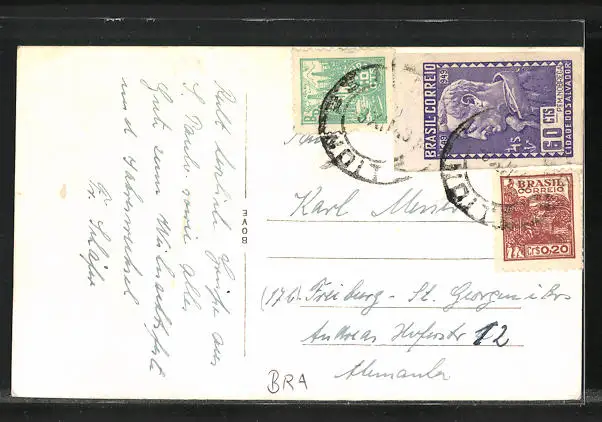 Recht herzliche Grüße aus
S. Paulo sowie alles
Gute zum Weihnachtsfeste
und Jahreswechsel
Fr. Schäfer
BOVE
BRASIL CORREIO
1549 1949
60 CTS
CIDADE DO SALVADOR
BRASIL
CORREIO
Cr$ 0,20
Karl
(17b) Freiburg - St. Georgen i Brs
Andreas Hoferstr 12
Alemanha
BRA